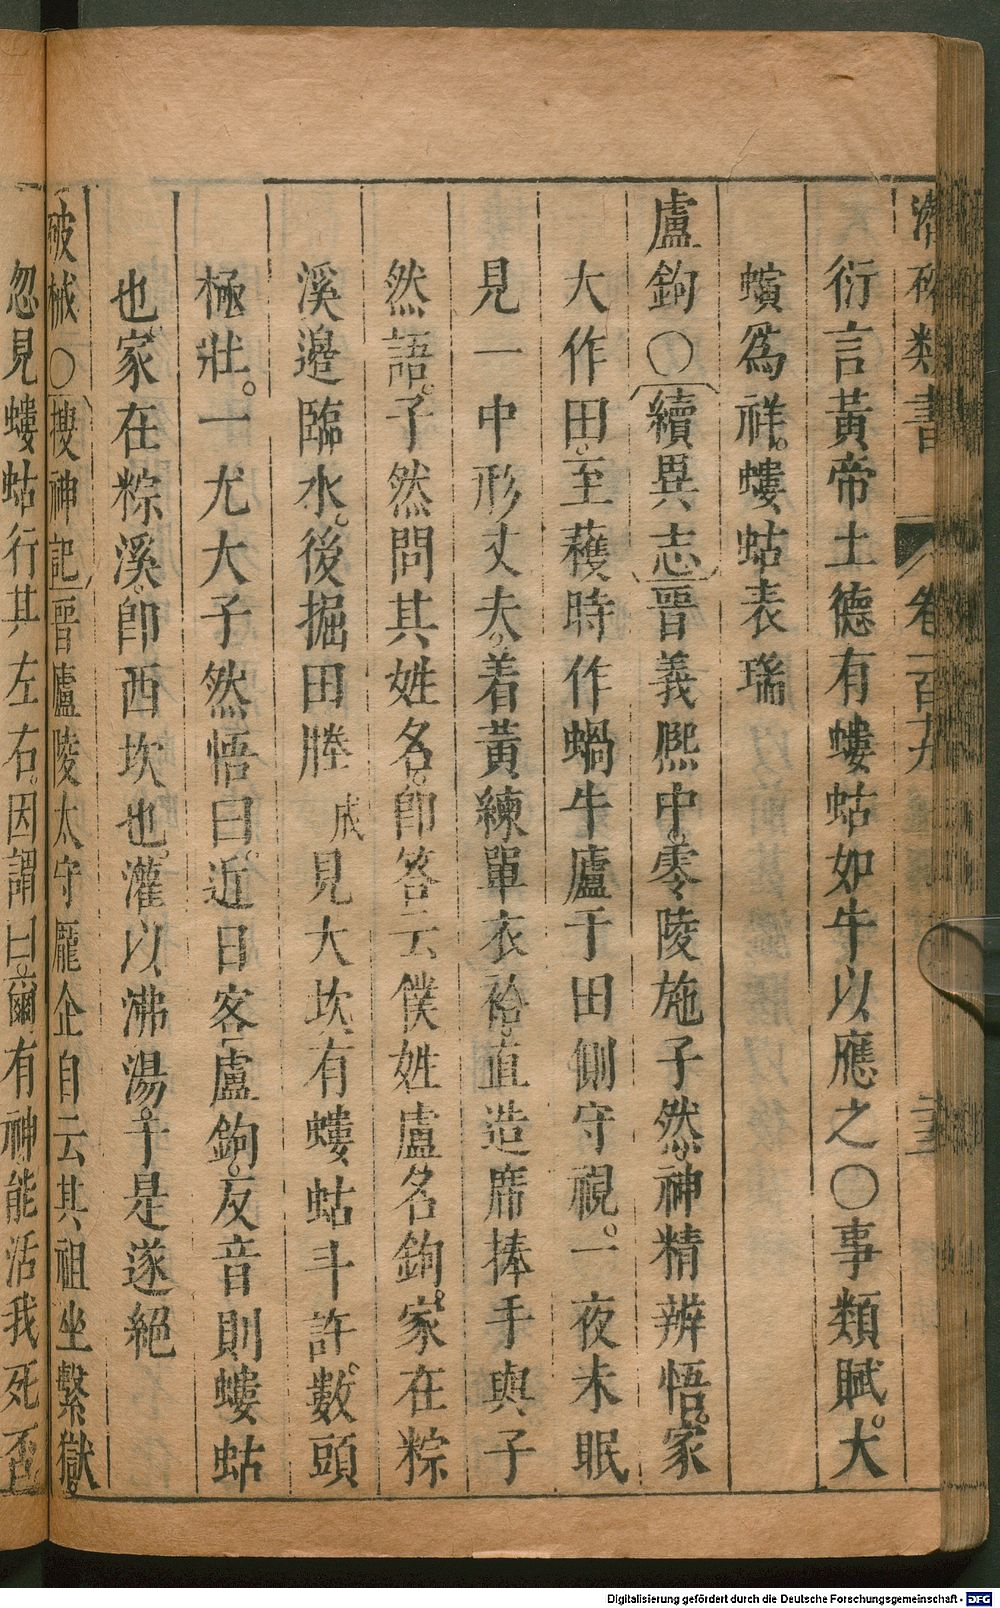 潛確類書 卷一百九
衍言黃帝土德有螻蛄如牛以應之○事類賦大
螾爲祥螻蛄表瑞
盧鉤○續異志晉義熈中零陵施子然神精辨悟家
大作田至穫時作蝸牛廬于田側守視一夜未眠
見一中形丈夫着黃練單衣袷直造席捧手與子
然語子然問其姓名卽答云僕姓盧名鉤家在粽
溪邊臨水後掘田塍成見大坎有螻蛄斗許數頭
極壯一尤大子然悟曰近日客盧鉤反音則螻蛄
也家在粽溪卽西坎也灌以沸湯于是遂絕
破械○搜神記晉廬陵太守龎企自云其祖坐繫獄
忽見螻蛄行其左右因謂曰爾有神能活我死否
Digitalisierung gefördert durch die Deutsche Forschungsgemeinschaft - DFG